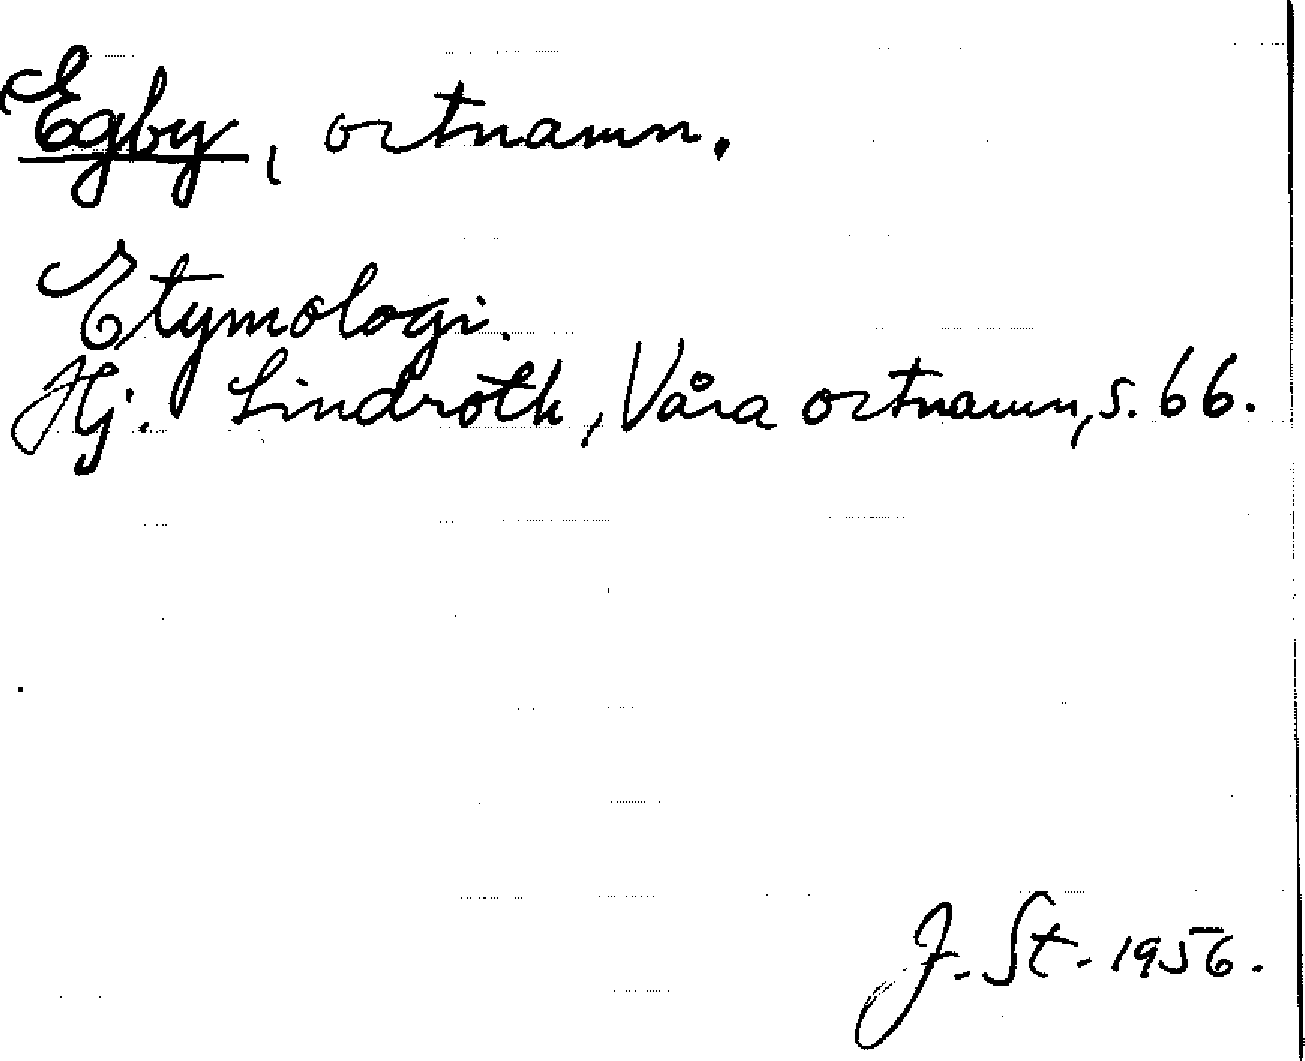 Egby, ortnamn.
Etymologi.
Hj. Lindroth, Våra ortnamn, s. 66.
J. St. 1956.